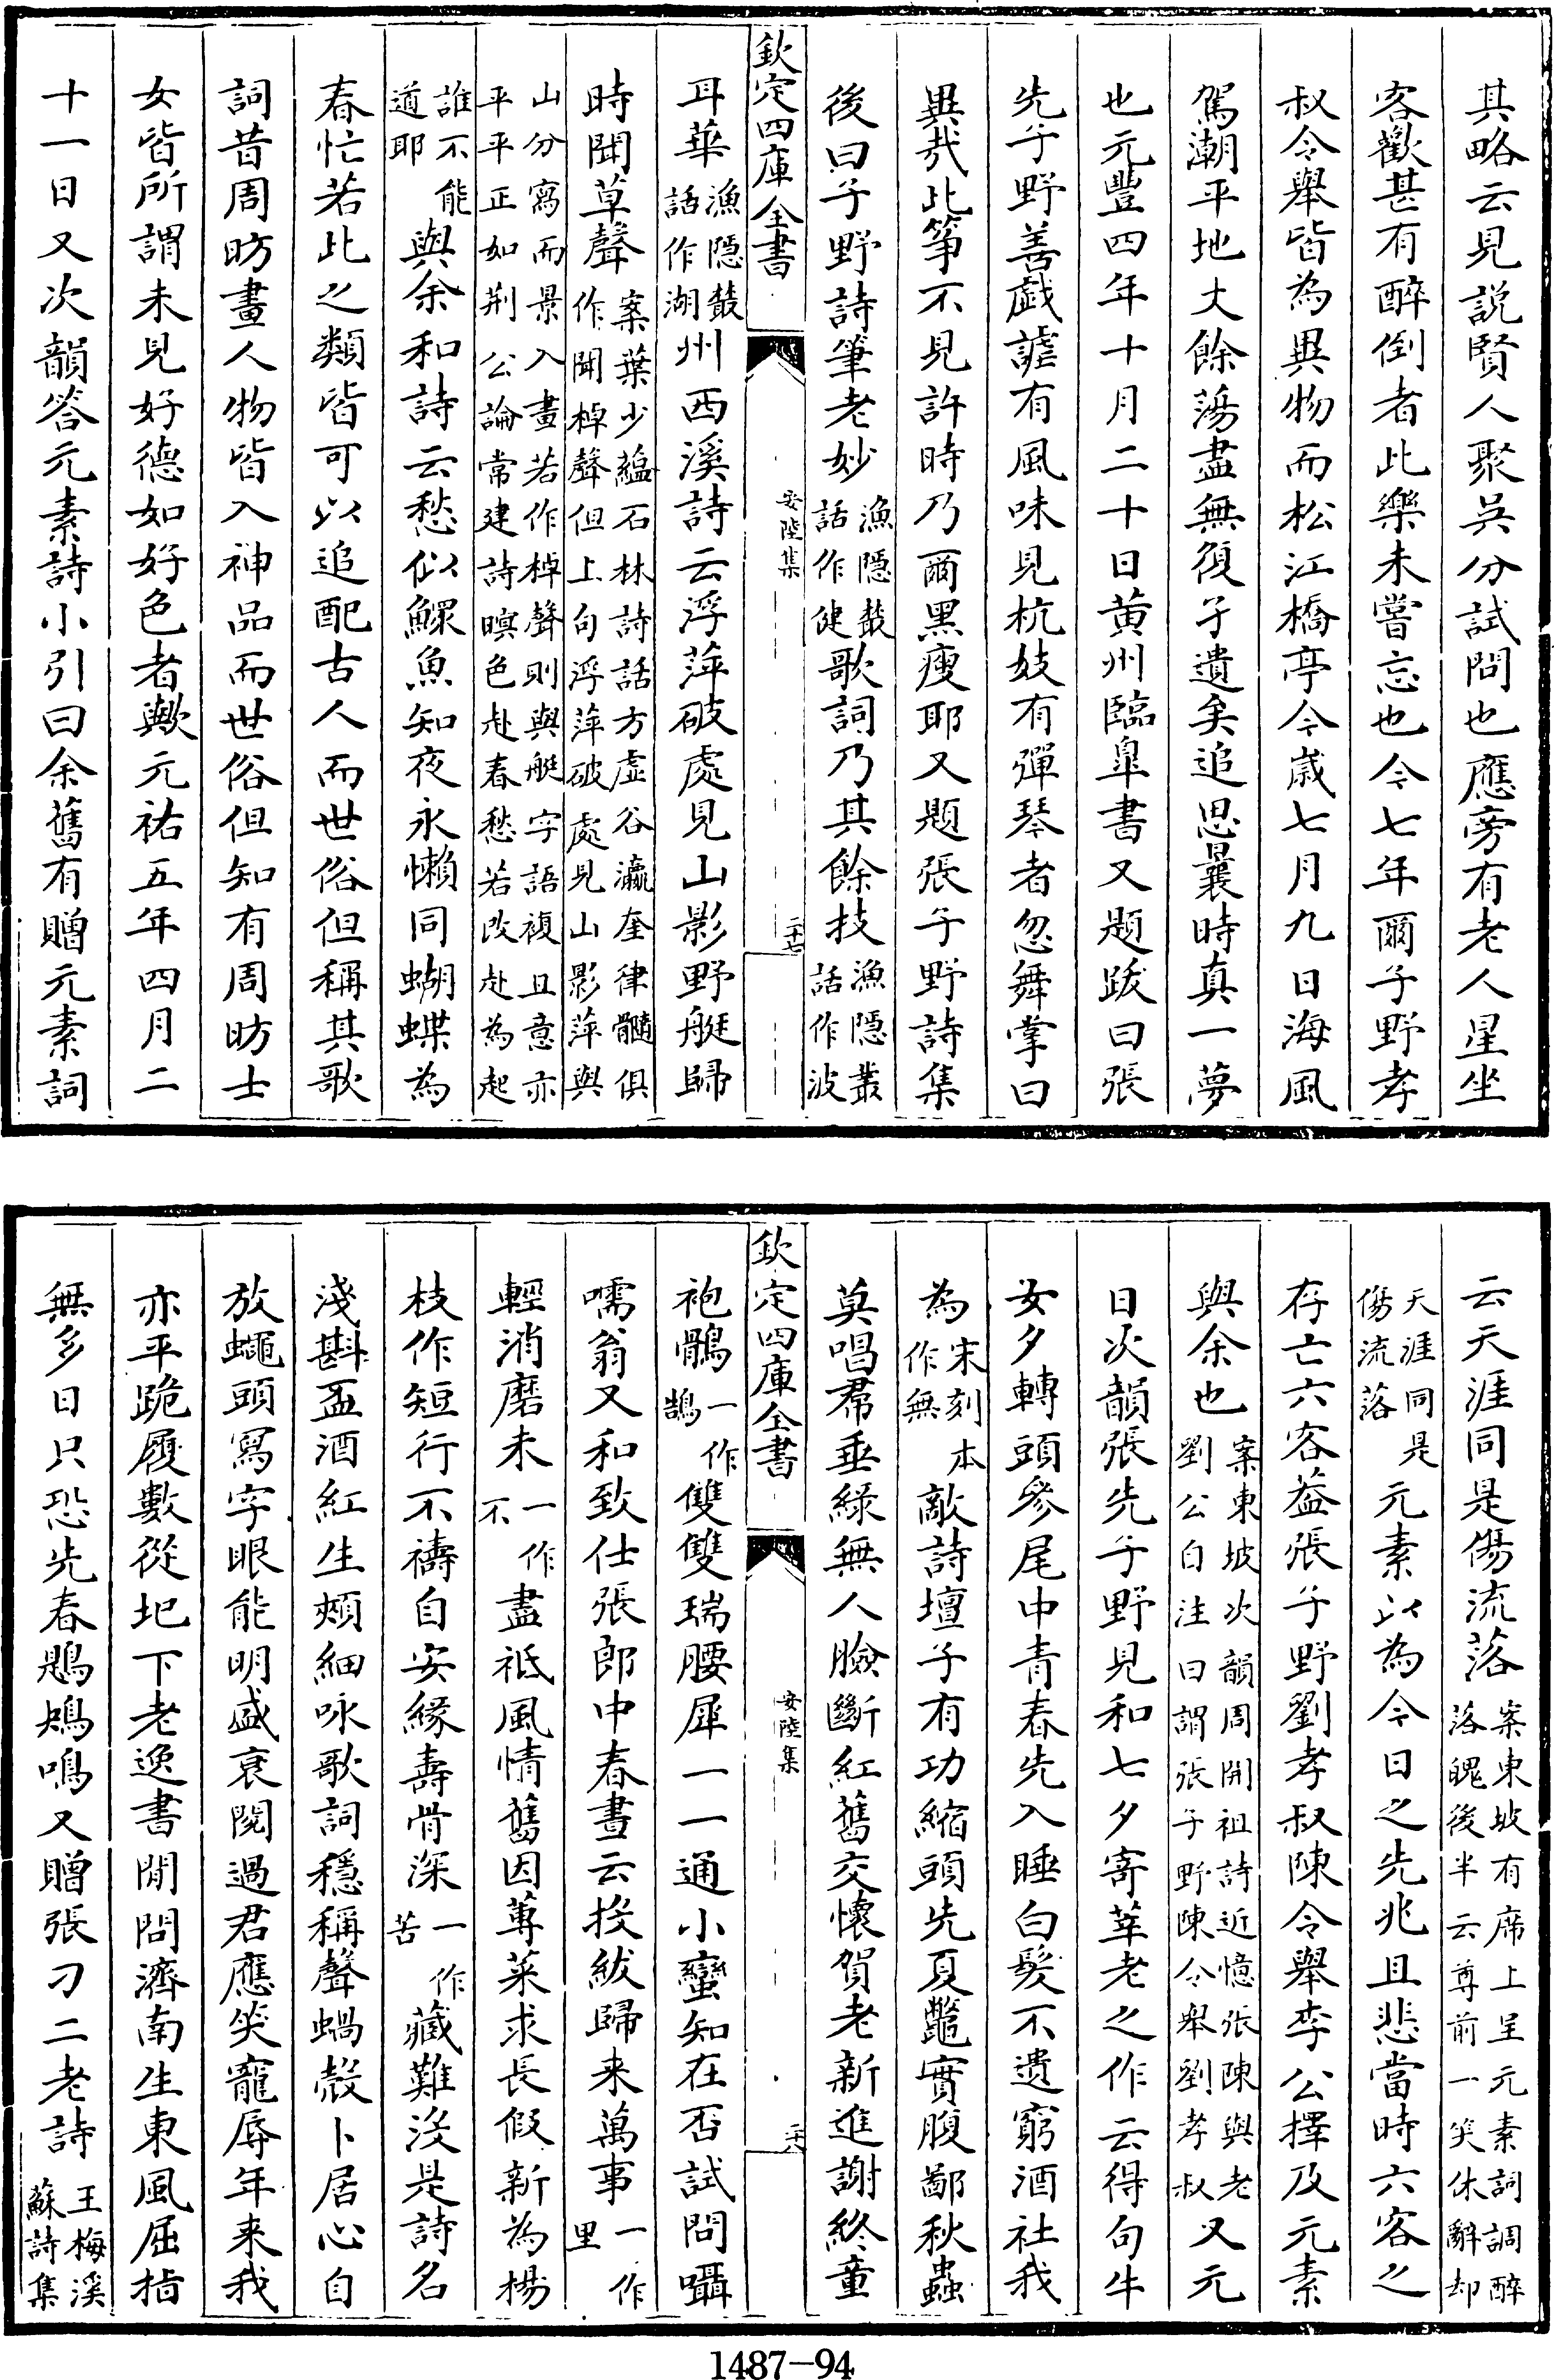 其略云見説賢人聚吳分試問也應旁有老人星坐
客歡甚有醉倒者此樂未嘗忘也今七年爾子野孝
叔令舉皆為異物而松江橋亭今歳七月九日海風
駕潮平地丈餘蕩盡無復孑遺矣追思曩時真一夢
也元豐四年十月二十日黄州臨臯書又題跋曰張
先子野善戯謔有風味見杭妓有彈琴者忽舞掌曰
異哉此箏不見許時乃爾黑瘦耶又題張子野詩集
後曰子野詩筆老妙漁隱叢話作健歌詞乃其餘技漁隱叢話作波
欽定四庫全書 安陸集 二十七
耳華漁隱叢話作湖州西溪詩云浮萍破處見山影野艇歸
時聞草聲案葉少蘊石林詩話方虚谷瀛奎律髓俱作聞棹聲但上句浮萍破處見山影萍與
山分寫而景入畫若作棹聲則與艇字語複且意亦平平正如荆公論常建詩暝色赴春愁若改赴為起
誰不能道耶與余和詩云愁似鰥魚知夜永懶同蝴蝶為
春忙若此之類皆可以追配古人而世俗但稱其歌
詞昔周昉畫人物皆入神品而世俗但知有周昉士
女皆所謂未見好德如好色者歟元祐五年四月二
十一日又次韻答元素詩小引曰余舊有贈元素詞
云天涯同是傷流落案東坡有席上呈元素詞調醉落魄後半云尊前一笑休辭却
天涯同是傷流落元素以為今日之先兆且悲當時六客之
存亡六客葢張子野劉孝叔陳令舉李公擇及元素
與余也案東坡次韻周開祖詩近憶張陳與老劉公自注曰謂張子野陳令舉劉孝叔又元
日次韻張先子野見和七夕寄莘老之作云得句牛
女夕轉頭參尾中青春先入睡白髮不遺窮酒社我
為宋刻本作無敵詩壇子有功縮頭先夏鼈實腹鄙秋蟲
莫唱帬垂緑無人臉斷紅舊交懷賀老新進謝終童
欽定四庫全書 安陸集 二十八
袍鶻一作鵠雙雙瑞腰犀一一通小蠻知在否試問囁
嚅翁又和致仕張郎中春晝云投紱歸来萬事一作里
輕消磨未一作不盡祗風情舊因蓴菜求長假新為楊
枝作短行不禱自安緣壽骨深一作苦藏難没是詩名
淺斟盃酒紅生頰細咏歌詞穩稱聲蝸殻卜居心自
放蠅頭寫字眼能明盛衰閱過君應笑寵辱年来我
亦平跪履數從圯下老逸書閒問濟南生東風屈指
無多日只恐先春鶗鴂鳴又贈張刁二老詩王梅溪蘇詩集
1487-94